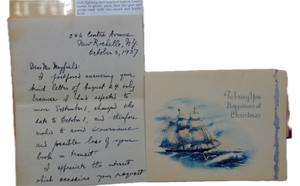 226 Centre Avenue
New Rochelle, N.Y.
October 3, 1937
Dear Mr. Mayfield:
I postponed answering your
kind letter of August 24 only
because I had expected to
 
date to October 1, and therefore
wished to avoid inconvenience
and possible loss of your
book in transit.
I appreciate the interest
which occasions your request
To bring You
Happiness at
Christmas